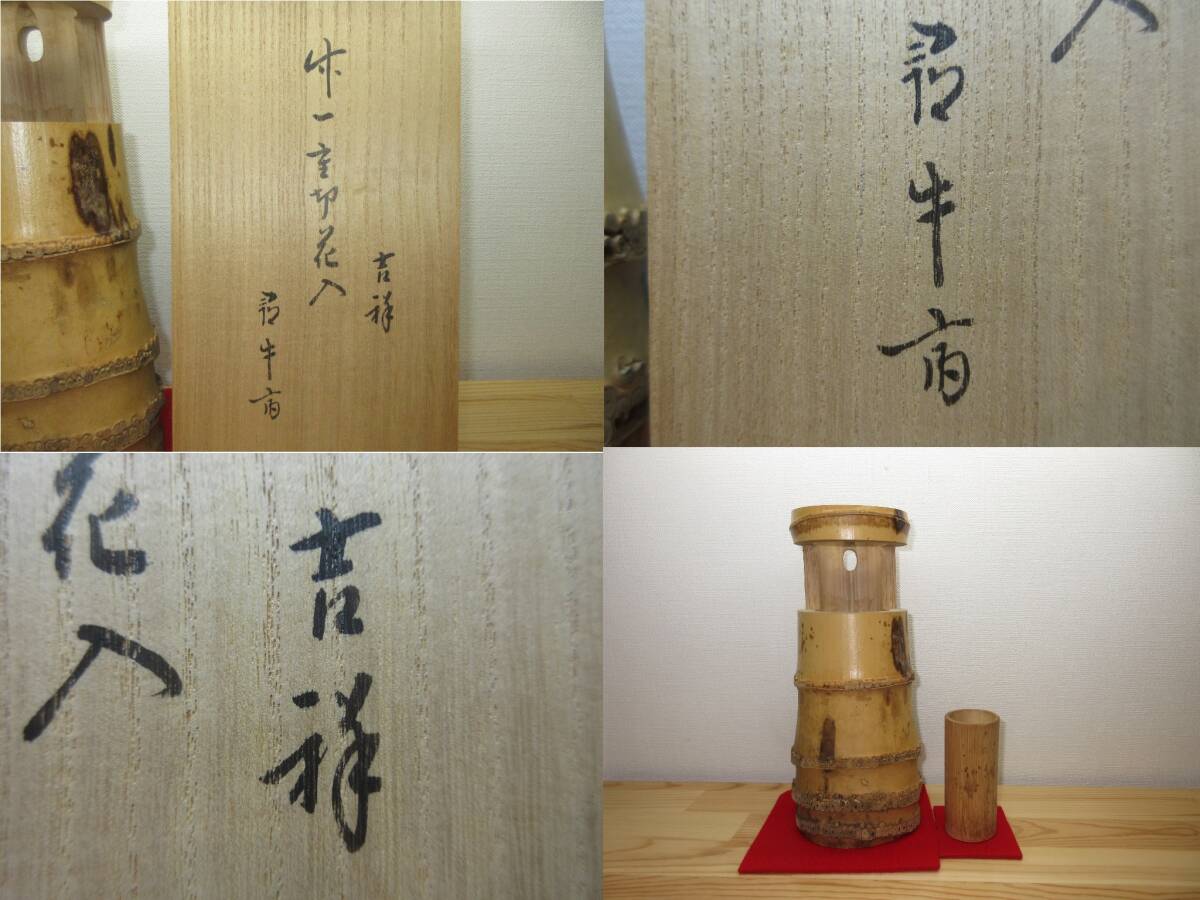 吉祥
竹一重切花入
尋牛斎
入
尋牛斎
吉祥
花入